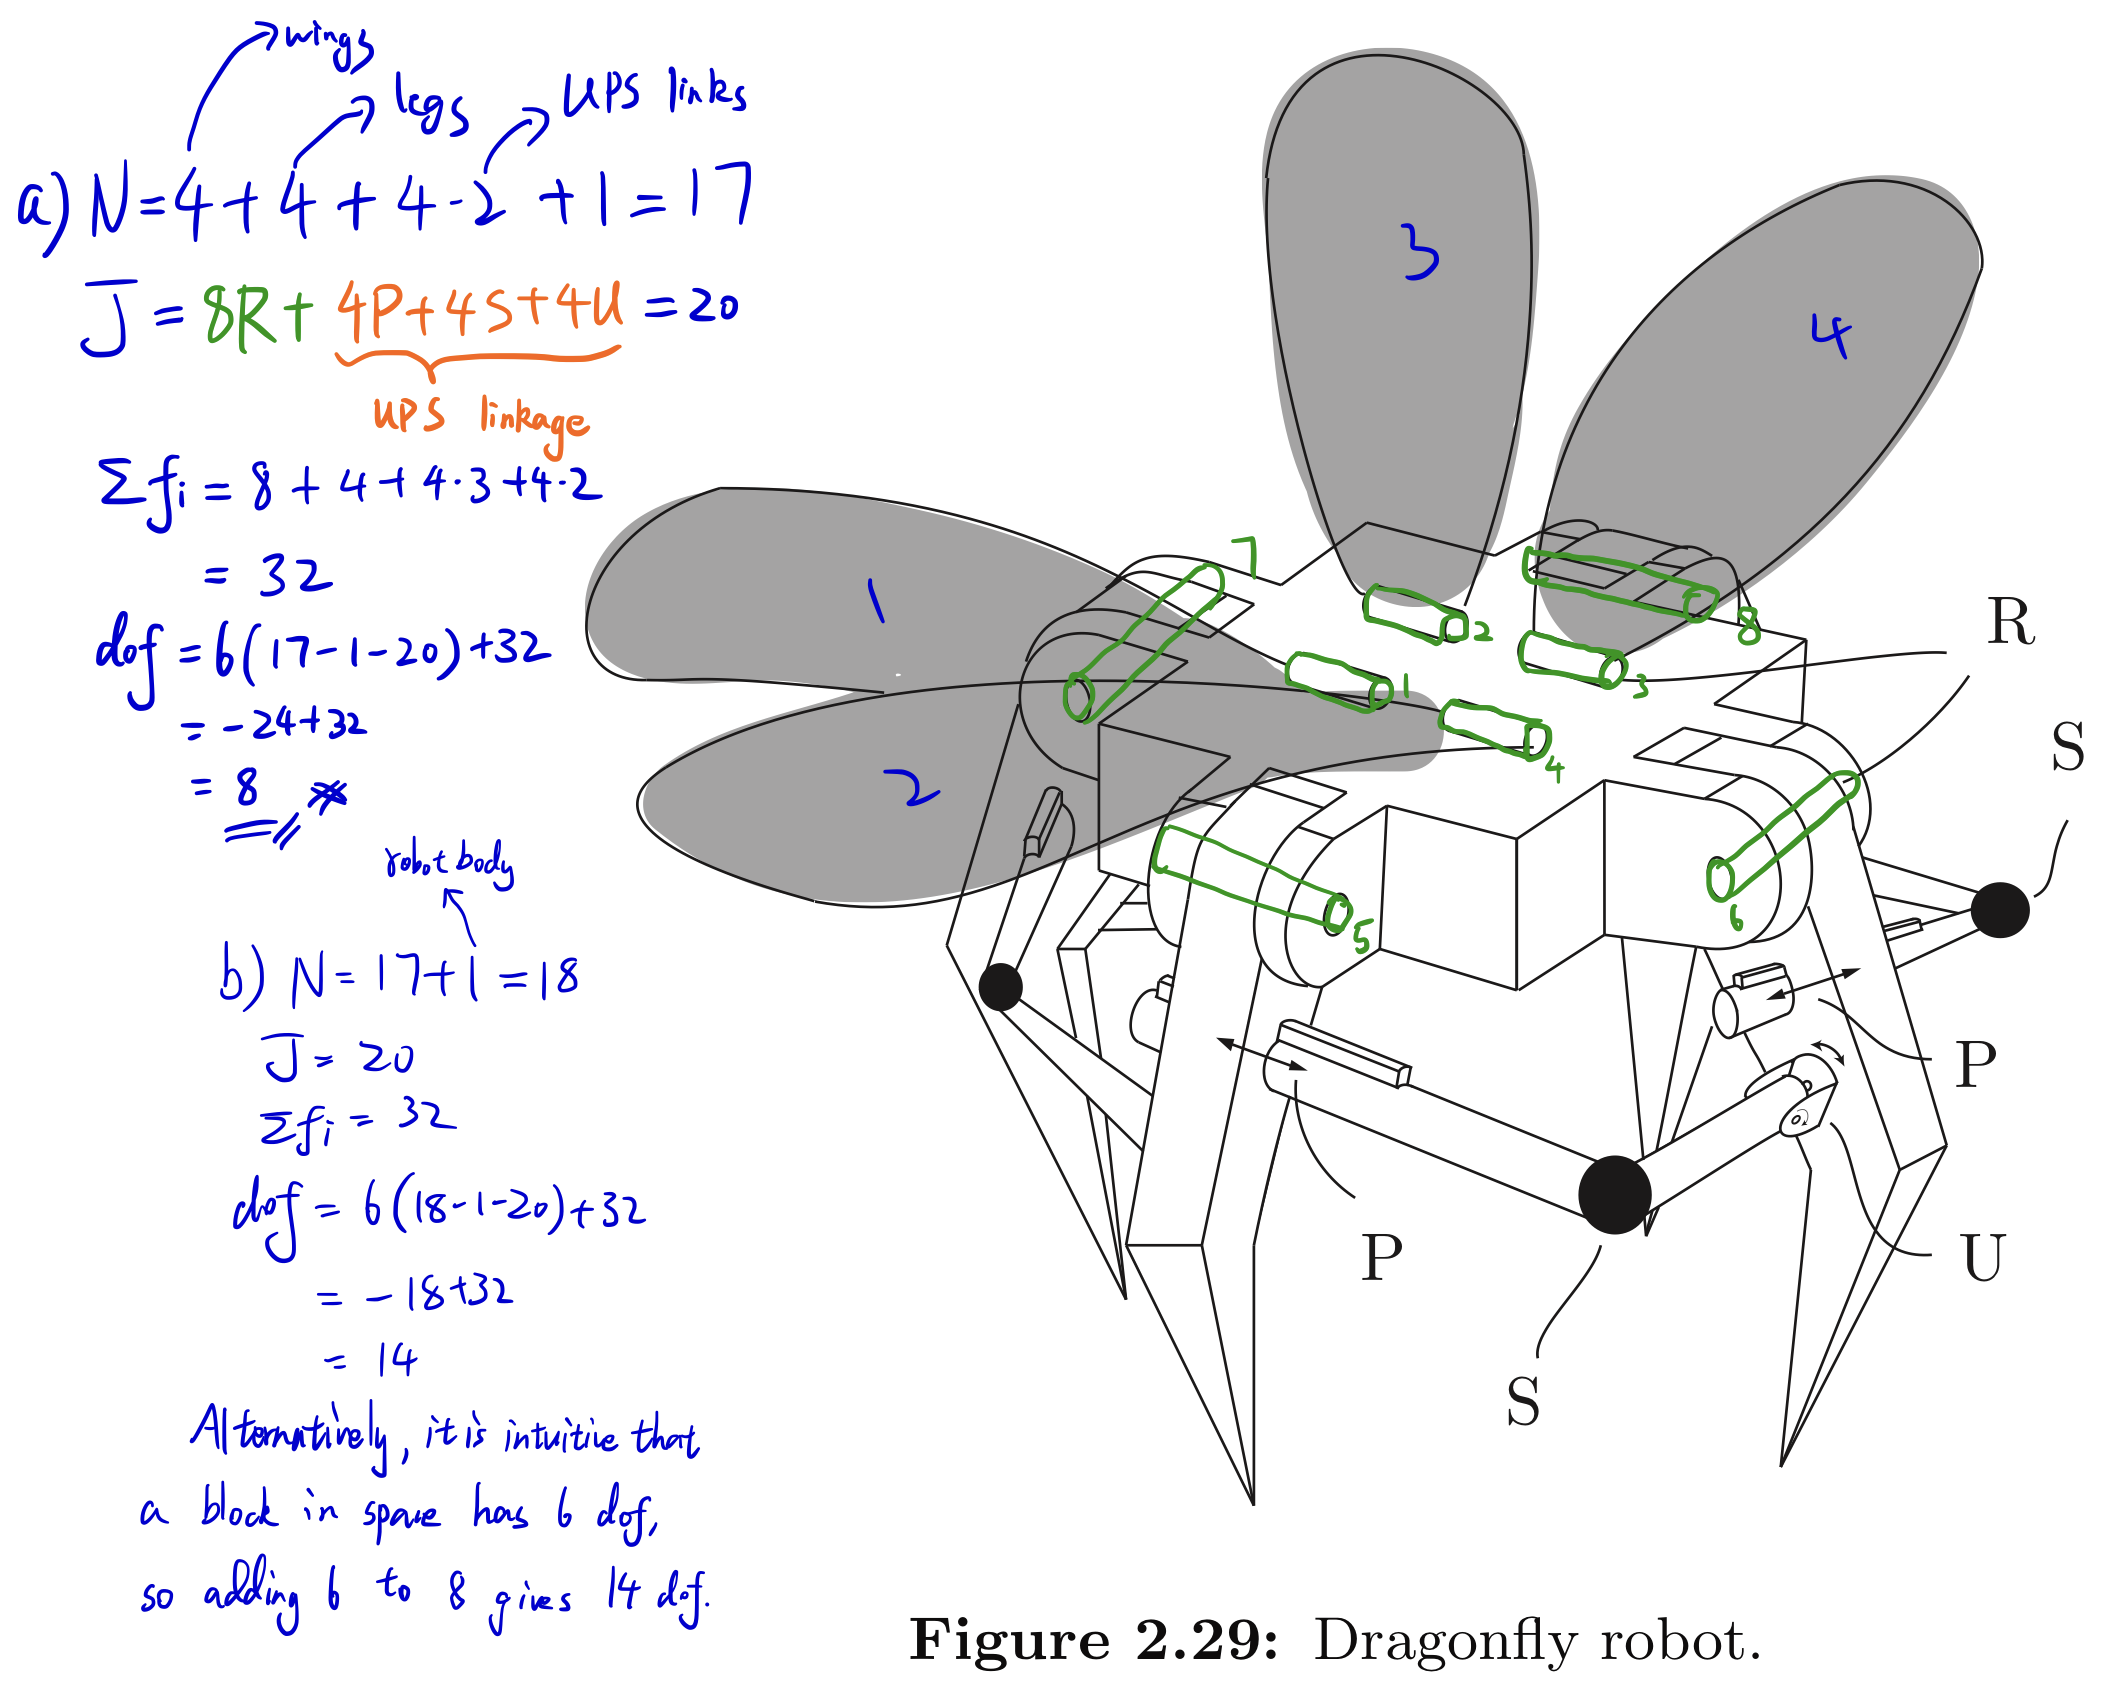 wings
legs
UPS links
a) N=4+4+4·2+1=17
J=8R+4P+4S+4U=20
UPS linkage
Σfi=8+4+4·3+4·2
=32
dof=6(17-1-20)+32
=-24+32
=8
robot body
b) N=17+1=18
J=20
Σfi=32
dof=6(18-1-20)+32
=-18+32
=14
Alternatively, it is intuitive that
a block in space has 6 dof,
so adding 6 to 8 gives 14 dof.
3
4
1
2
7
8
2
1
3
4
5
6
R
S
P
U
P
S
Figure 2.29: Dragonfly robot.